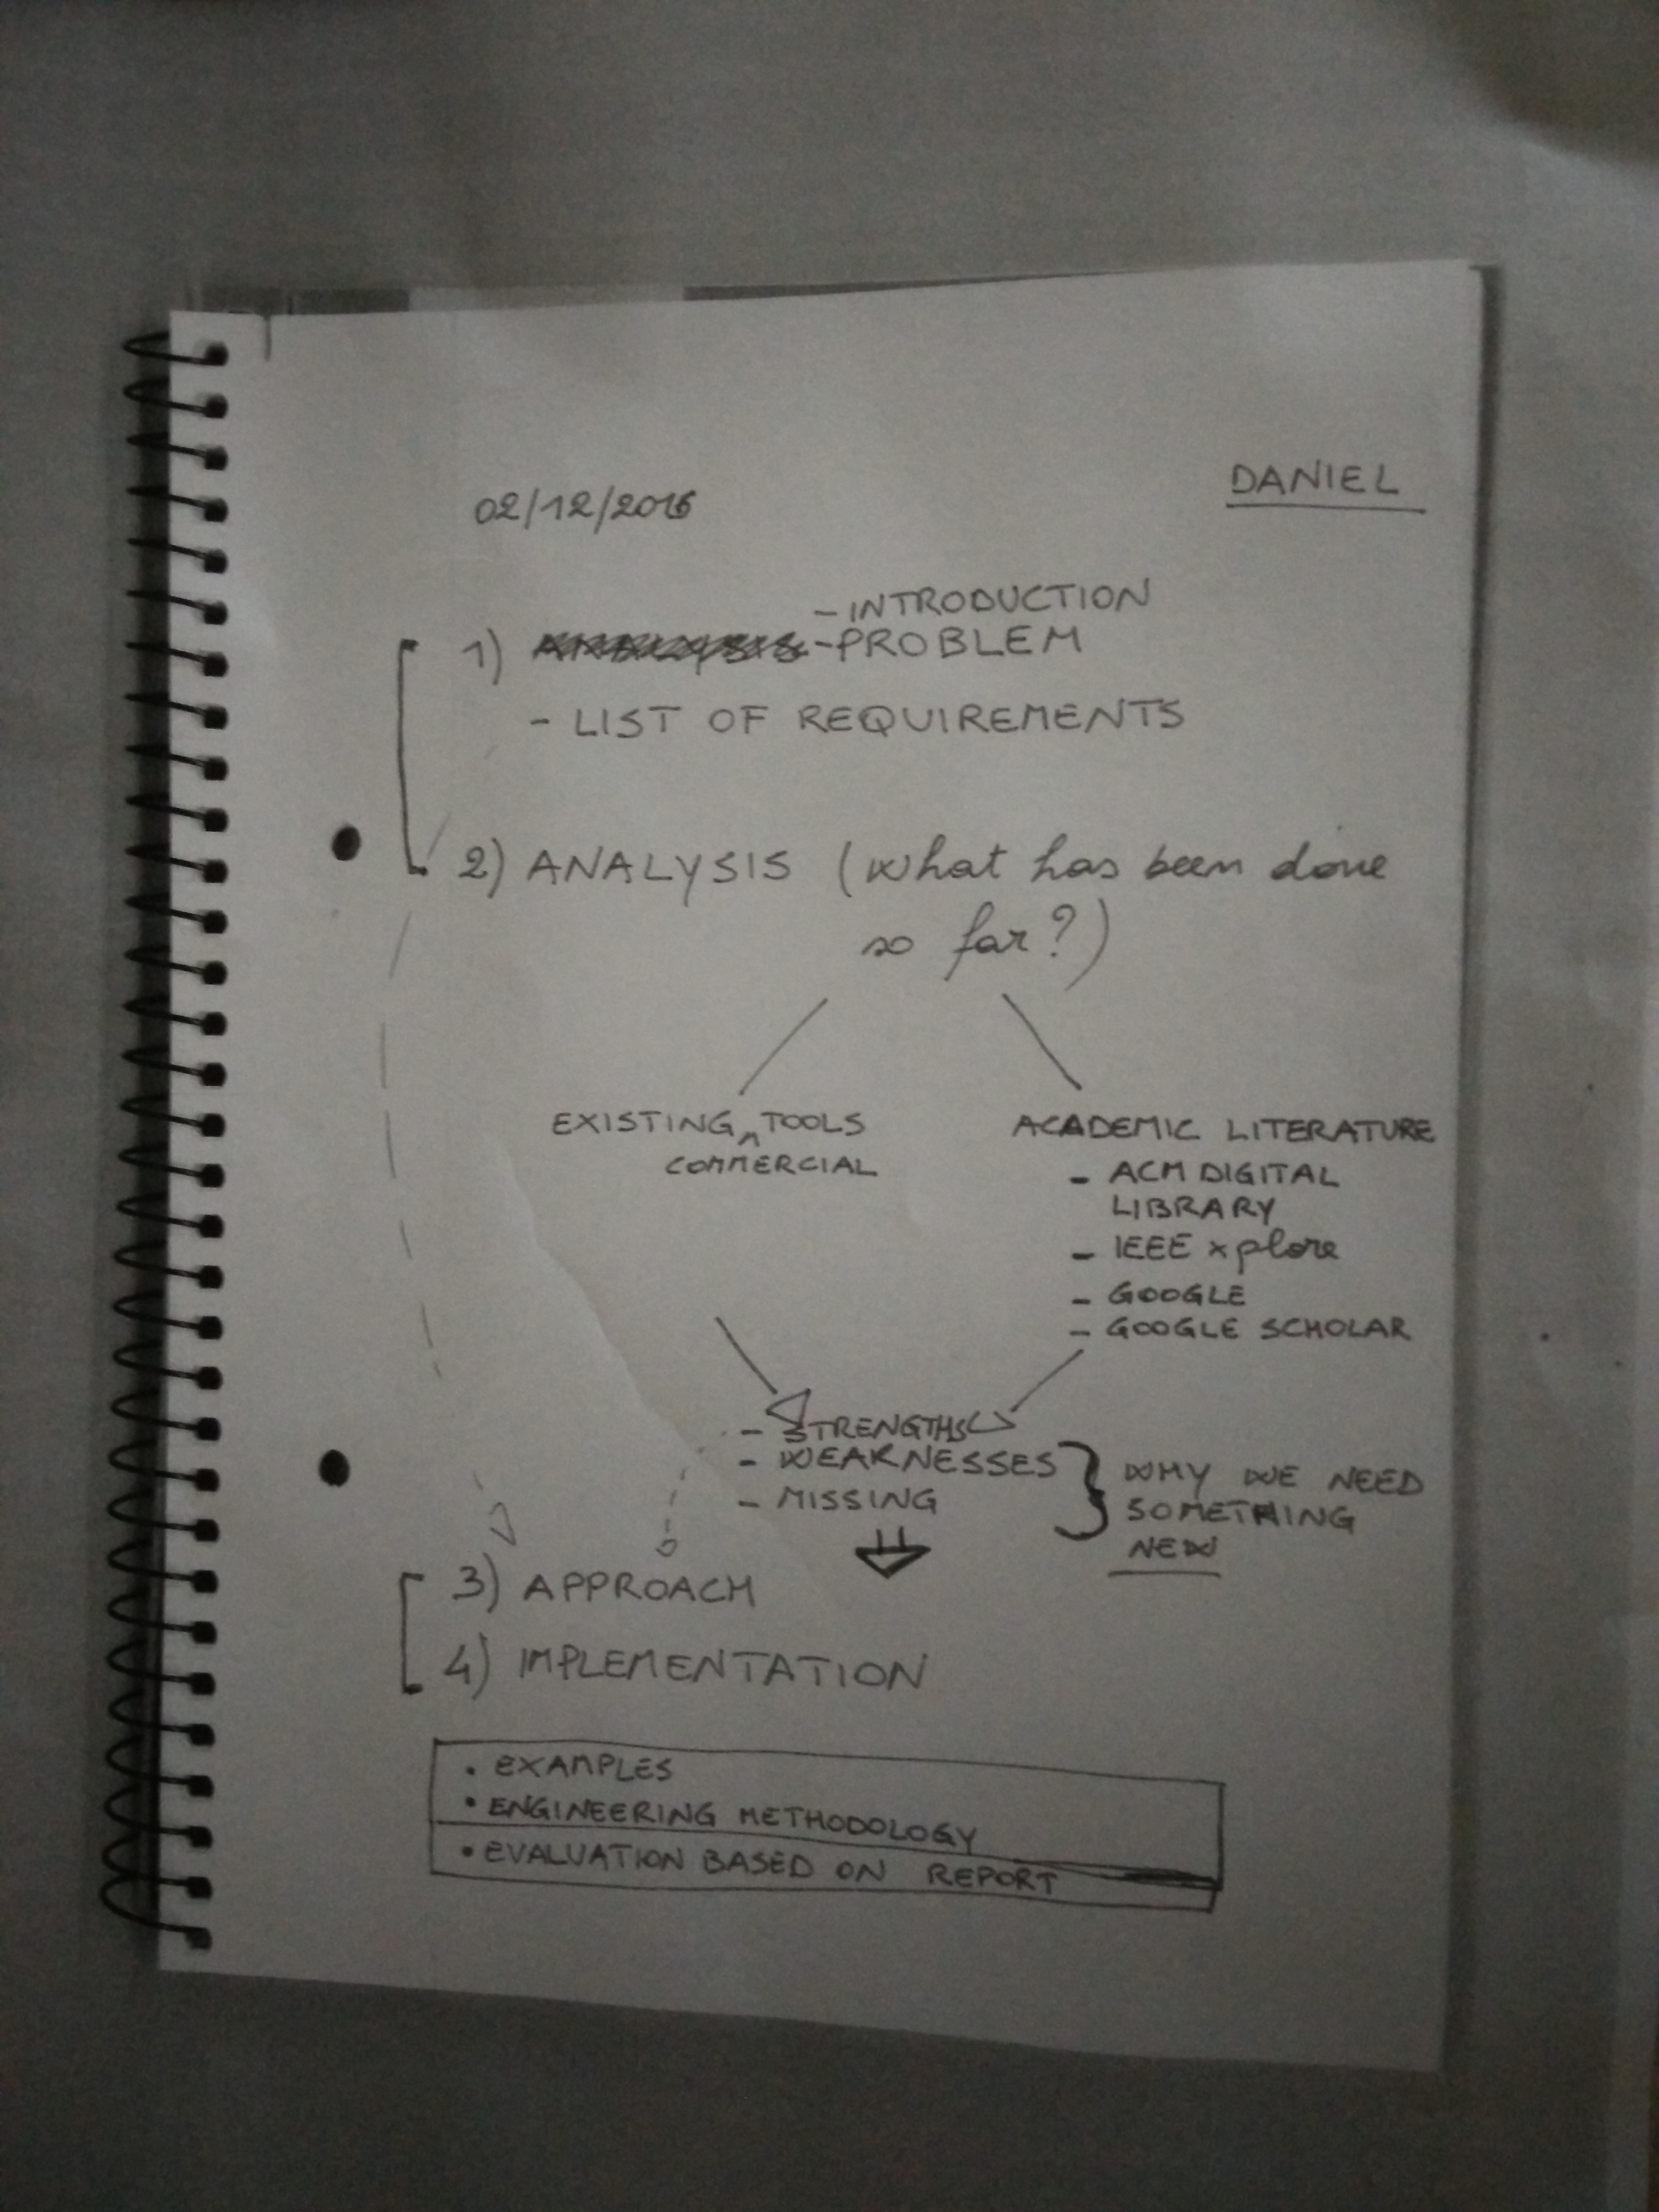 DANIEL
02/12/2016
- INTRODUCTION
1) - PROBLEM
- LIST OF REQUIREMENTS
2) ANALYSIS (What has been done
so far?)
EXISTING TOOLS
COMMERCIAL
ACADEMIC LITERATURE
- ACM DIGITAL
LIBRARY
- IEEE xplore
- GOOGLE
- GOOGLE SCHOLAR
- STRENGTHS
- WEAKNESSES
- MISSING
WHY WE NEED
SOMETHING
NEW
3) APPROACH
4) IMPLEMENTATION
• EXAMPLES
• ENGINEERING METHODOLOGY
• EVALUATION BASED ON REPORT